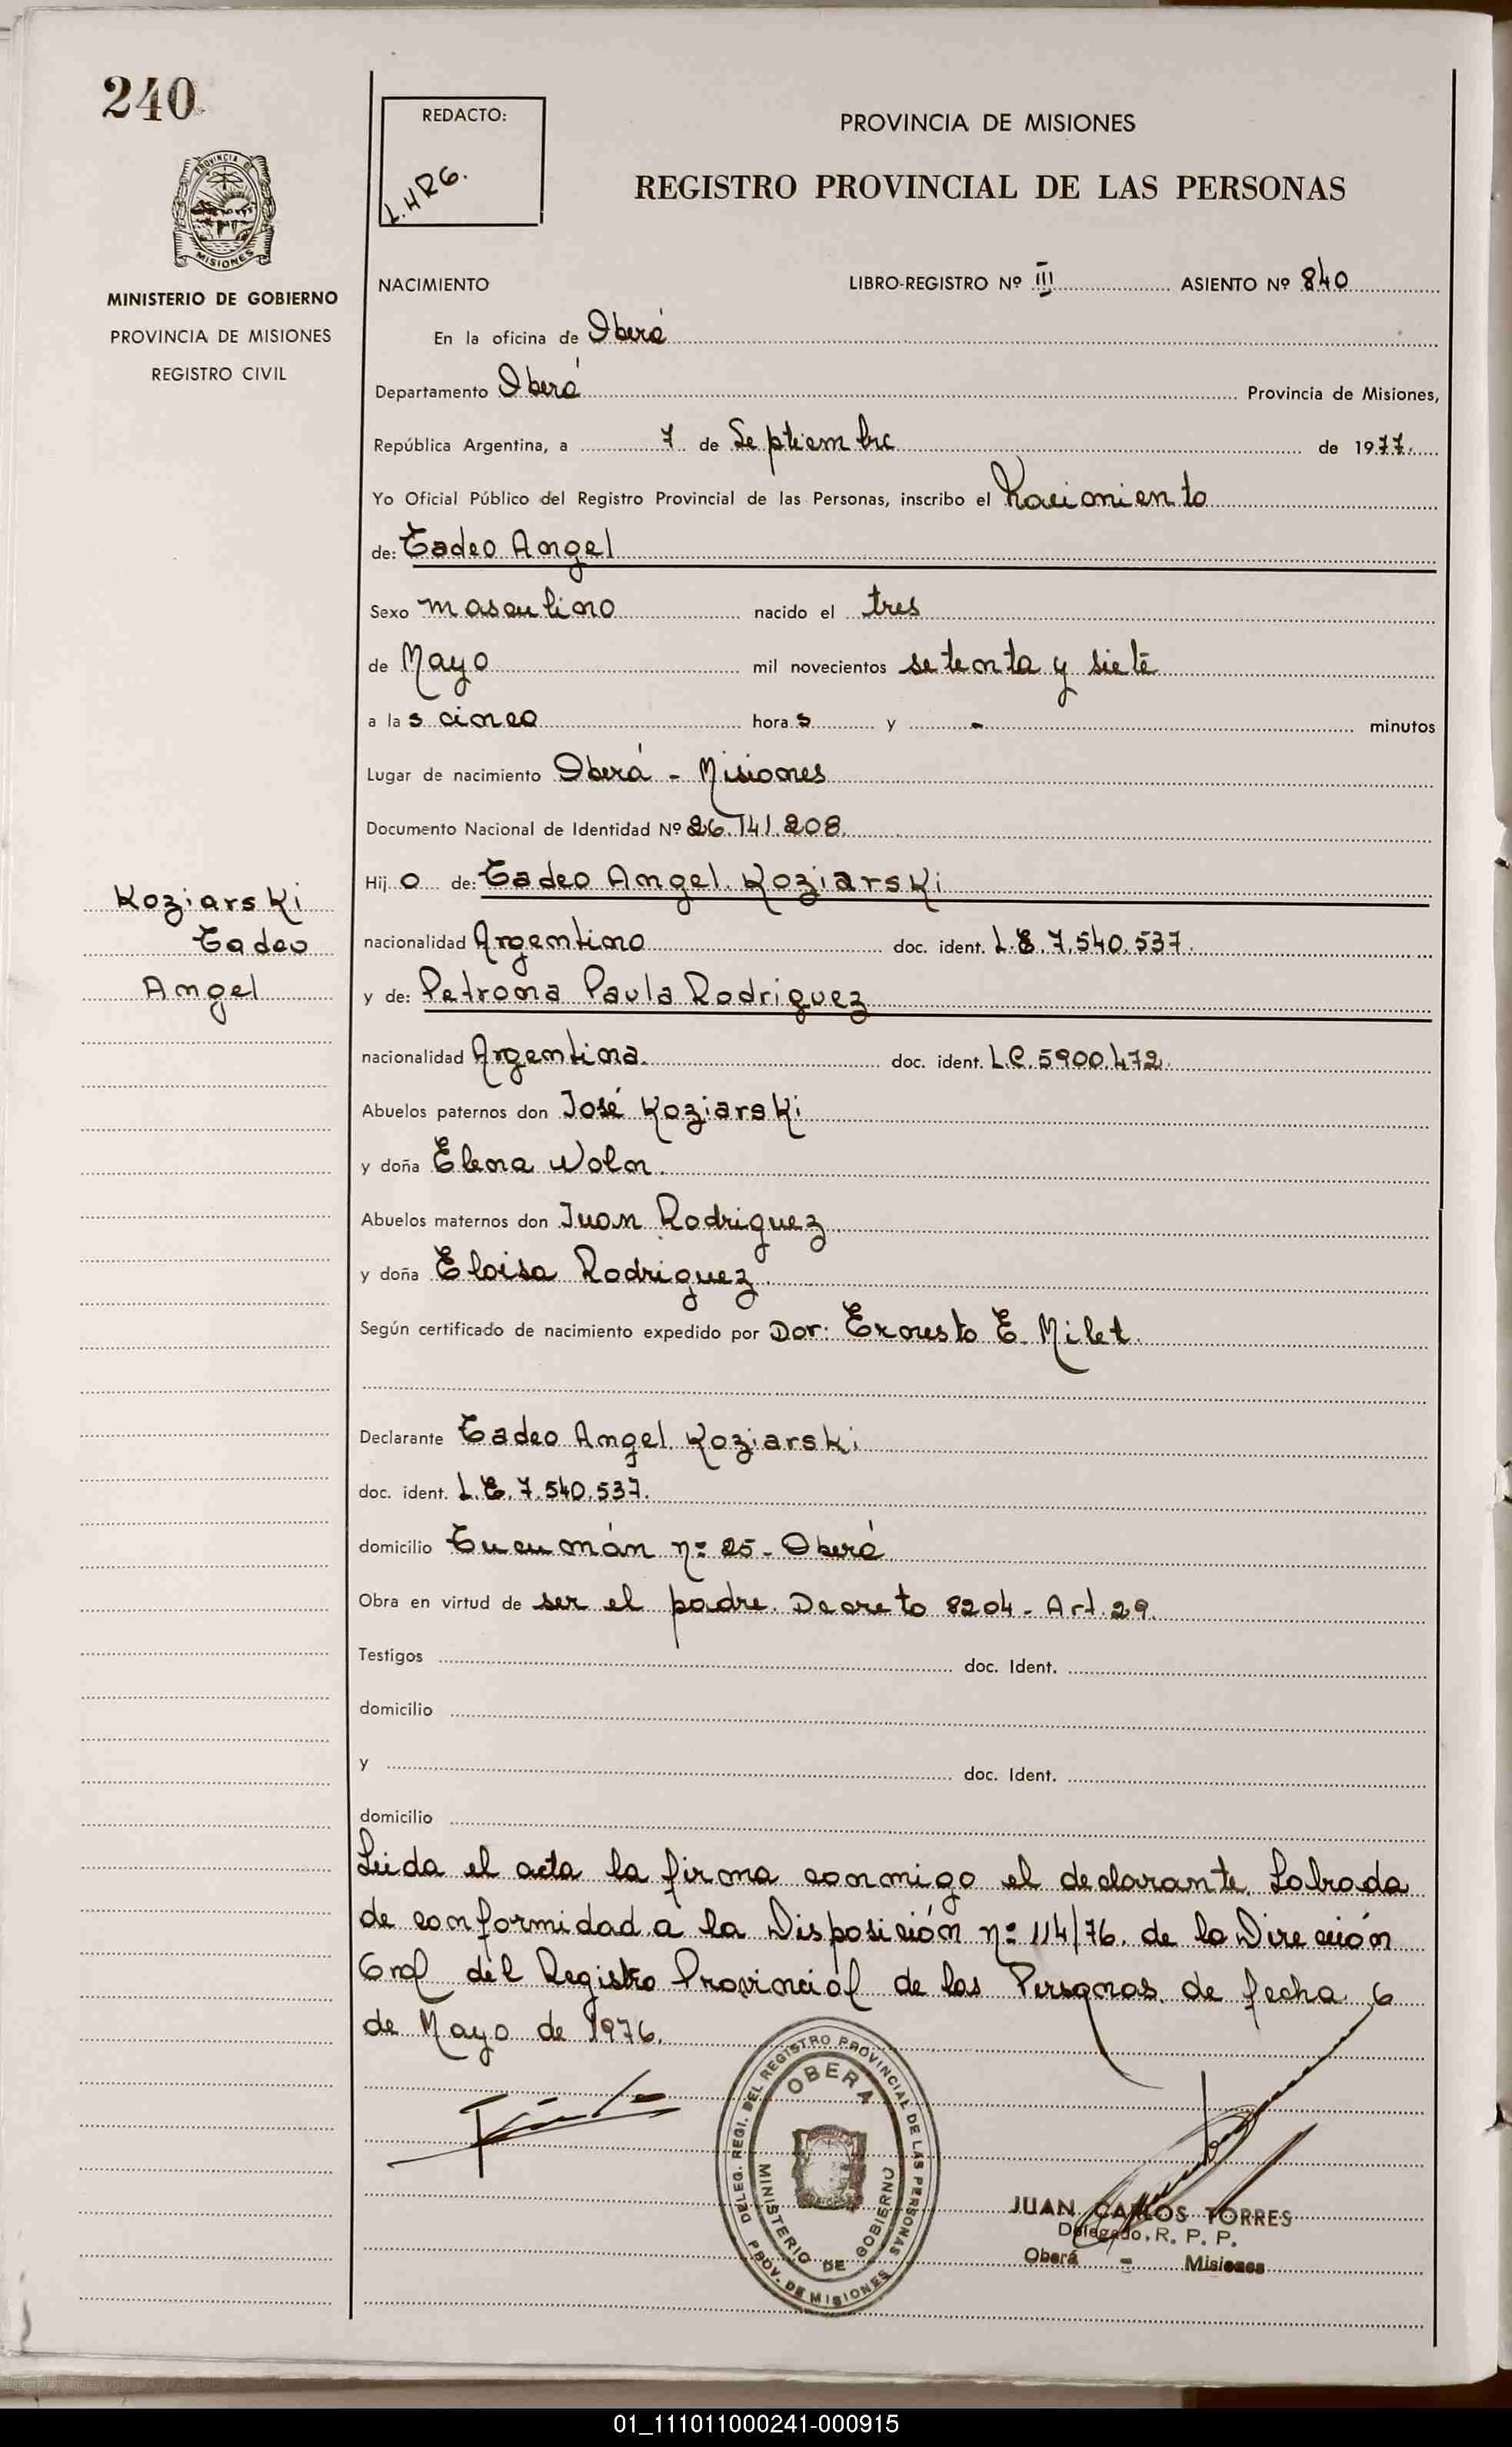 240
REDACTO:
L.HRG.
PROVINCIA DE MISIONES
REGISTRO PROVINCIAL DE LAS PERSONAS
PROVINCIA DE
MISIONES
MINISTERIO DE GOBIERNO
PROVINCIA DE MISIONES
REGISTRO CIVIL
NACIMIENTO LIBRO-REGISTRO Nº III ASIENTO Nº 840
En la oficina de Oberá
Departamento Oberá Provincia de Misiones,
República Argentina, a 7 de Septiembre de 1977.
Yo Oficial Público del Registro Provincial de las Personas, inscribo el Nacimiento
de: Tadeo Angel
Sexo masculino nacido el tres
de Mayo mil novecientos setenta y siete
a las cinco horas y - minutos
Lugar de nacimiento Oberá - Misiones
Documento Nacional de Identidad Nº 26.141.208.
Hijo de: Tadeo Angel Koziarski
nacionalidad Argentino doc. ident. L.E. 7.540.537.
y de: Petrona Paula Rodriguez
nacionalidad Argentina. doc. ident. L.C. 5900.472.
Koziarski
Tadeo
Angel
Abuelos paternos don José Koziarski
y doña Elena Woln.
Abuelos maternos don Juan Rodriguez
y doña Eloisa Rodriguez.
Según certificado de nacimiento expedido por Dor: Ernesto E. Milet.
Declarante Tadeo Angel Koziarski
doc. ident. L.E. 7.540.537.
domicilio Tucumán nº 25 - Oberá
Obra en virtud de ser el padre. Decreto 8204 - Art. 29.
Testigos doc. Ident.
domicilio
y doc. Ident.
domicilio
Leida el acta la firma conmigo el declarante. Labrada
de conformidad a la Disposición nº 114/76. de la Dirección
Gral del Registro Provincial de las Personas. de fecha 6
de Mayo de 1976.
DELEG. REGI. DEL REGISTRO PROVINCIAL DE LAS PERSONAS
OBERA
MINISTERIO DE GOBIERNO
PROV. DE MISIONES
JUAN CARLOS TORRES
Delegado, R. P. P.
Oberá - Misiones
01_111011000241-000915